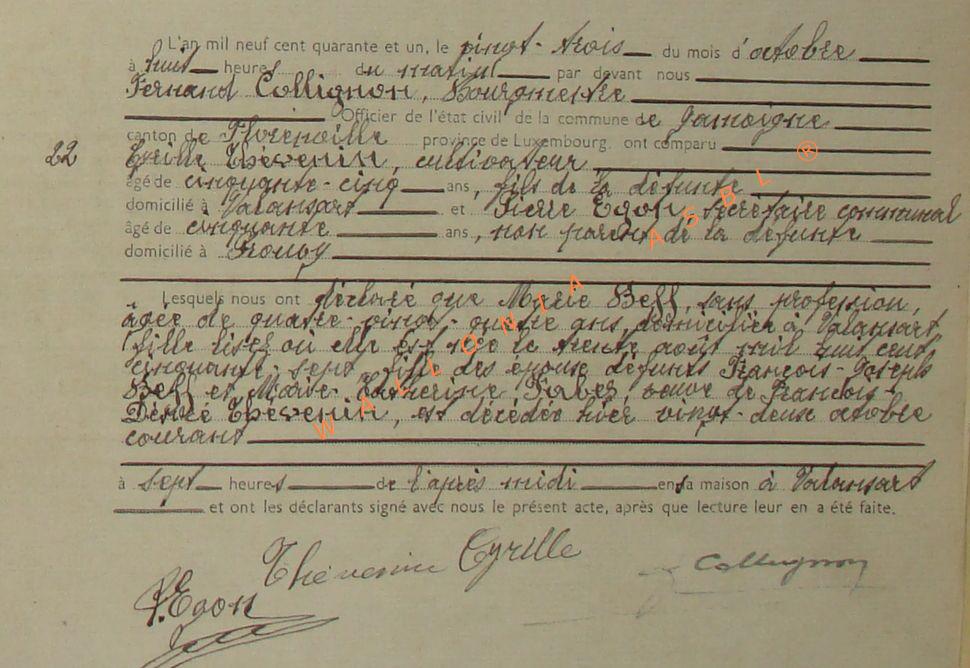 L'an mil neuf cent quarante et un, le vingt-trois du mois d'octobre
à huit heures du matin par devant nous
Fernand Collignon, Bourgmestre
Officier de l'état civil de la commune de Jamoigne
canton de Florenville province de Luxembourg. ont comparu
22 Cyrille Thévenin, cultivateur,
âgé de cinquante-cinq ans, fils de la défunte
domicilié à Valansart et Pierre Egon, secrétaire communal
âgé de cinquante ans, non parent de la défunte
domicilié à Prouvy
Lesquels nous ont déclaré que Marie Beff, sans profession,
âgée de quatre-vingt-quatre ans, domiciliée à Valansart,
fille où elle est née le trente août mil huit cent
cinquante-sept, fille des époux défunts François-Joseph
Beff et Marie-Catherine veuve de François-
Désiré Thévenin, est décédée hier vingt-deux octobre
courant
à sept heures de l'après midi en sa maison à Valansart
et ont les déclarants signé avec nous le présent acte, après que lecture leur en a été faite.
Thévenin Cyrille
Collignon
P. Egon
WALLONIA ASBL ®